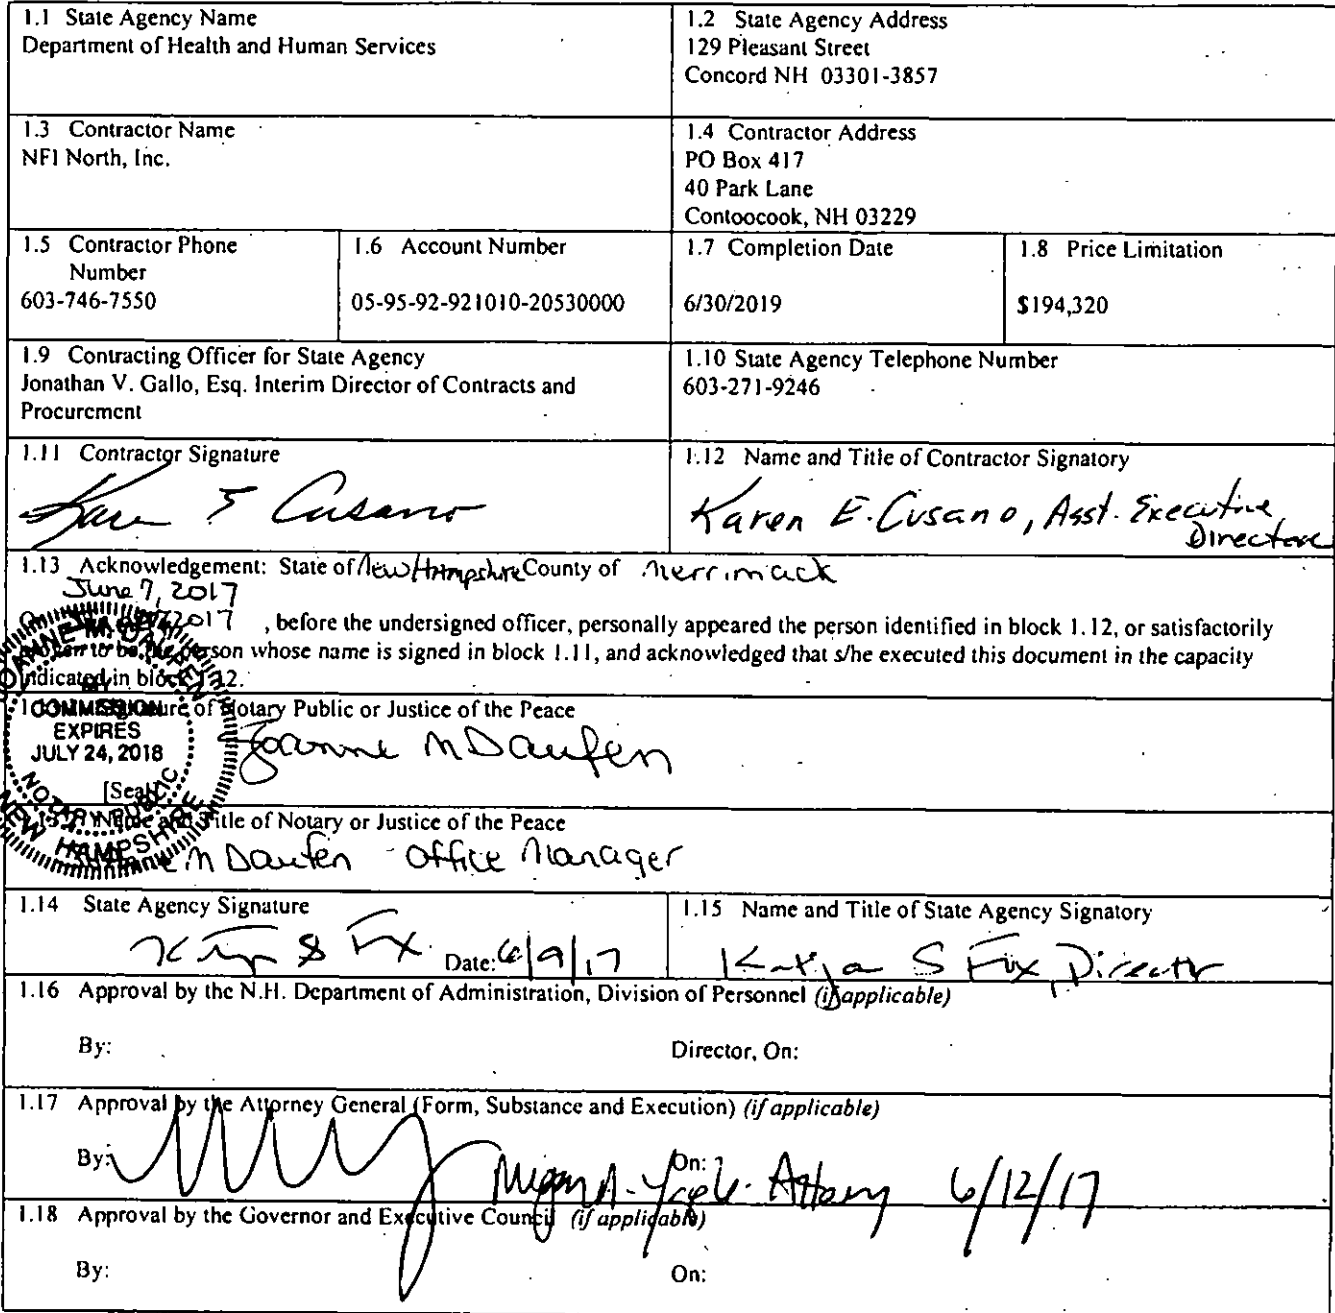 1.1 State Agency Name
Department of Health and Human Services
1.2 State Agency Address
129 Pleasant Street
Concord NH 03301-3857
1.3 Contractor Name
NFI North, Inc.
1.4 Contractor Address
PO Box 417
40 Park Lane
Contoocook, NH 03229
1.5 Contractor Phone
Number
603-746-7550
1.6 Account Number
05-95-92-921010-20530000
1.7 Completion Date
6/30/2019
1.8 Price Limitation
$194,320
1.9 Contracting Officer for State Agency
Jonathan V. Gallo, Esq. Interim Director of Contracts and
Procurement
1.10 State Agency Telephone Number
603-271-9246
1.11 Contractor Signature
Karen E Cusano
1.12 Name and Title of Contractor Signatory
Karen E. Cusano, Asst. Executive
Director
1.13 Acknowledgement: State of New Hampshire County of Merrimack
June 7, 2017
2017 , before the undersigned officer, personally appeared the person identified in block 1.12, or satisfactorily
to be the person whose name is signed in block 1.11, and acknowledged that s/he executed this document in the capacity
indicated in block 1.12.
of Notary Public or Justice of the Peace
Joanne M Daufen
JOANNE M. DAUFEN
MY
COMMISSION
EXPIRES
JULY 24, 2018
NOTARY PUBLIC
NEW HAMPSHIRE
[Seal]
Name and Title of Notary or Justice of the Peace
M Daufen - Office Manager
1.14 State Agency Signature
Date: 6/9/17
1.15 Name and Title of State Agency Signatory
Katja S Fox, Director
1.16 Approval by the N.H. Department of Administration, Division of Personnel (if applicable)
By:
Director, On:
1.17 Approval by the Attorney General (Form, Substance and Execution) (if applicable)
By:
On:
Megan A. Attorney 6/12/17
1.18 Approval by the Governor and Executive Council (if applicable)
By:
On: